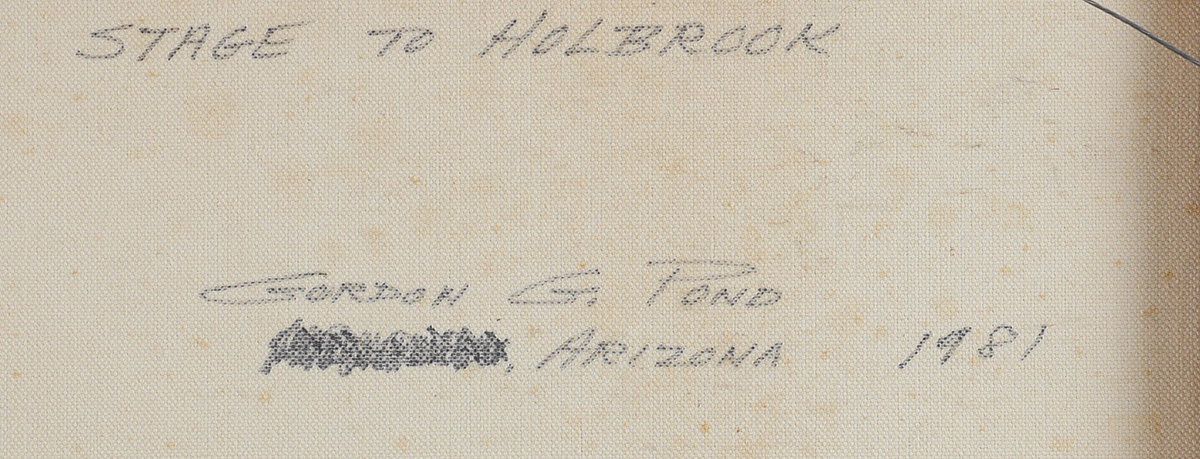 STAGE TO HOLBROOK
GORDON G. POND
, ARIZONA 1981